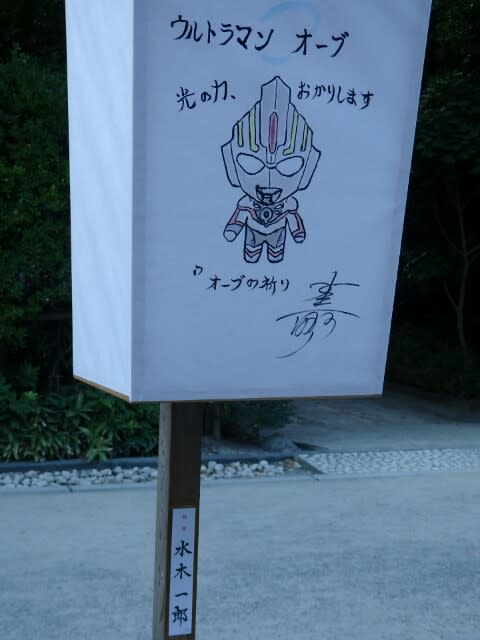 ウルトラマン オーブ
光の力、 おかりします
♪ オーブの祈り
水木一郎